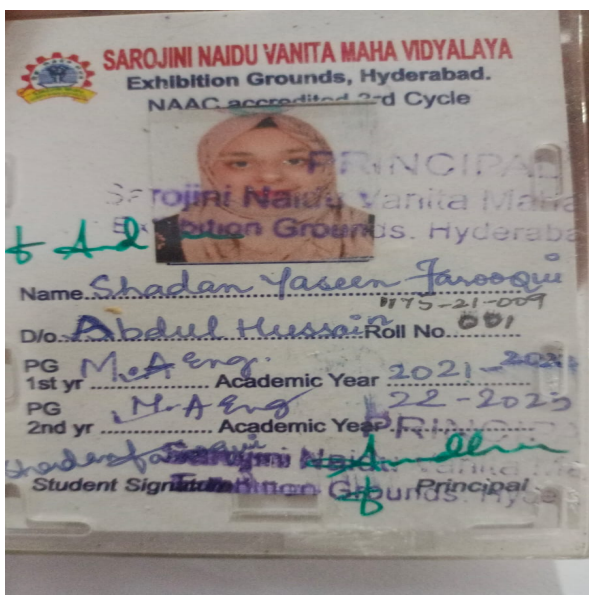 SAROJINI NAIDU VANITA MAHA VIDYALAYA
Exhibition Grounds, Hyderabad.
NAAC accredited 3rd Cycle
PRINCIPAL
Sarojini Naidu Vanita Maha
Exhibition Grounds. Hyderaba
Name Shadan Yaseen Farooqui
1175-21-009
D/o. Abdul Hussain Roll No. 001
PG
1st yr M.A Eng. Academic Year 2021-2022
PG
2nd yr M.A Eng Academic Year 22-2023
PRINCIPA
Sarojini Naidu Vanita
Student Signature Principal
Exhibition Grounds. Hyde